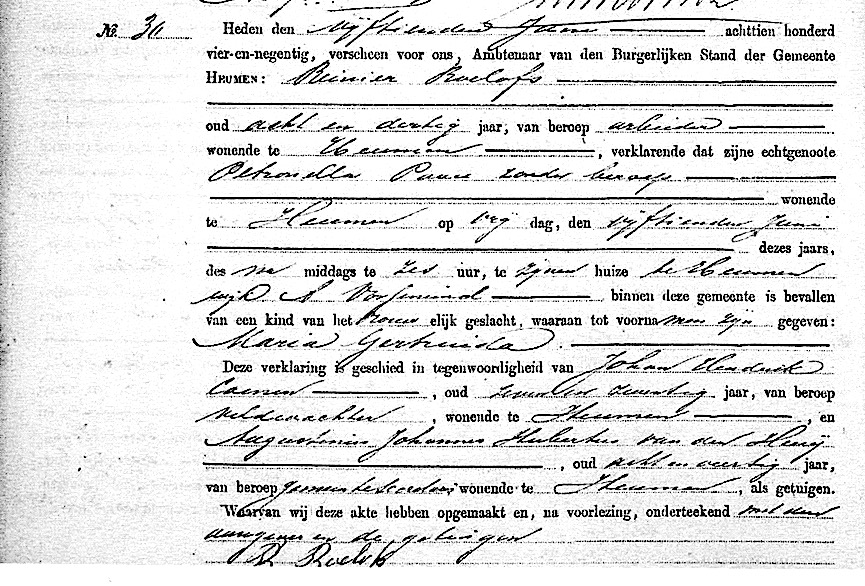 No. 30 Heden den vijftienden Juni achttien honderd
vier-en-negentig, verscheen voor ons, Ambtenaar van den Burgerlijken Stand der Gemeente
HEUMEN: Reinier Roelofs
oud acht en dertig jaar, van beroep arbeider
wonende te Heumen, verklarende dat zijne echtgenoote
Petronella zonder beroep
wonende
te Heumen op vrij dag, den vijftienden Juni
dezes jaars,
des na middags te zes uur, te zijnen huize te Heumen
wijk A binnen deze gemeente is bevallen
van een kind van het vrouw elijk geslacht, waaraan tot voorna men zijn gegeven:
Maria Gertruida.
Deze verklaring is geschied in tegenwoordigheid van Johan Hendrik
, oud zeven en twintig jaar, van beroep
veldwachter, wonende te Heumen, en
Augustinus Johannes Hubertus van der
, oud acht en veertig jaar,
van beroep wonende te Heumen, als getuigen.
Waarvan wij deze akte hebben opgemaakt en, na voorlezing, onderteekend met den
aangever en de getuigen
R Roelofs